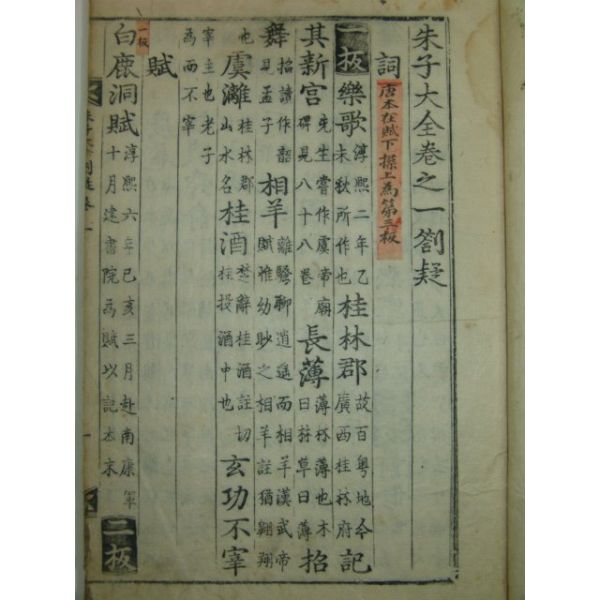 朱子大全卷之一劄疑
詞 唐本在賦下操上爲第三板
一板 樂歌 淳熙二年乙未秋所作也 桂林郡 故百粤地今廣西桂林府 記
其新宮 先生嘗作虞帝廟碑見八十八卷 長薄 薄林薄也木曰林草曰薄 招
舞 招讀作韶見孟子 相羊 離騷聊逍遙而相羊漢武帝賦雅幼眇之相羊註猶翺翔
也 虞灕 桂林郡山水名 桂酒 楚辭桂酒註切桂投酒中也 玄功不宰
宰主也老子爲而不宰
賦
一板 白鹿洞賦 淳熙六年己亥三月赴南康軍十月建書院爲賦以記本末
二板